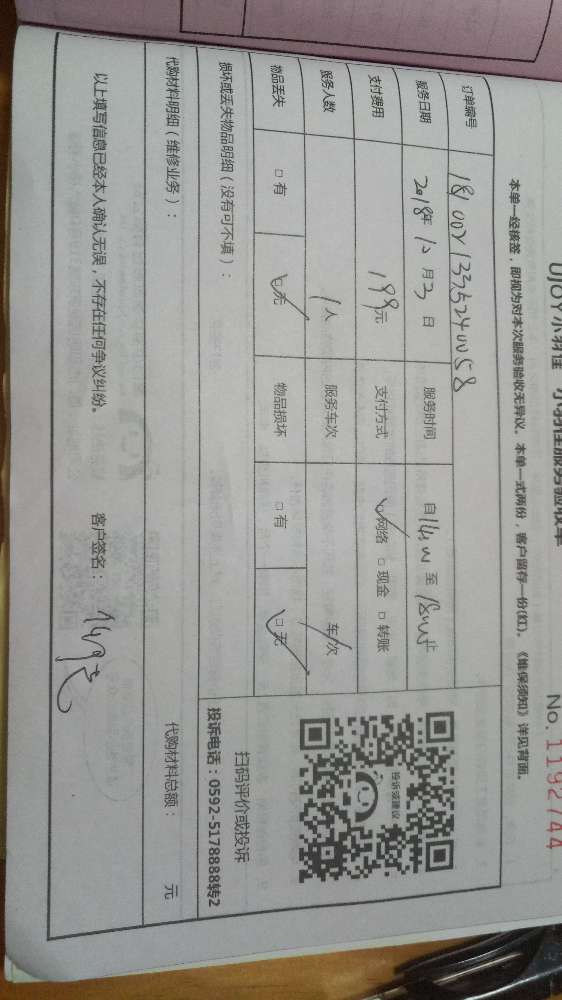 UJOY小羽佳 小羽佳服务验收单
No.1192744
本单一经接签，即视为对本次服务验收无异议。本单一式两份，客户留存一份(红)。《维保须知》详见背面。
订单编号
服务日期 2018年12月3日 服务时间 自14:00至18:00止
支付费用 199元 支付方式 网络 □现金 □转账
服务人数 1人 服务车次 / 车次
物品丢失 □有 □无 物品损坏 □有 □无
损坏或丢失物品明细（没有可不填）：
扫码评价或投诉
投诉电话：0592-5178888转2
投诉或建议
代购材料明细（维修业务）： 代购材料总额： 元
以上填写信息已经本人确认无误，不存在任何争议纠纷。 客户签名：